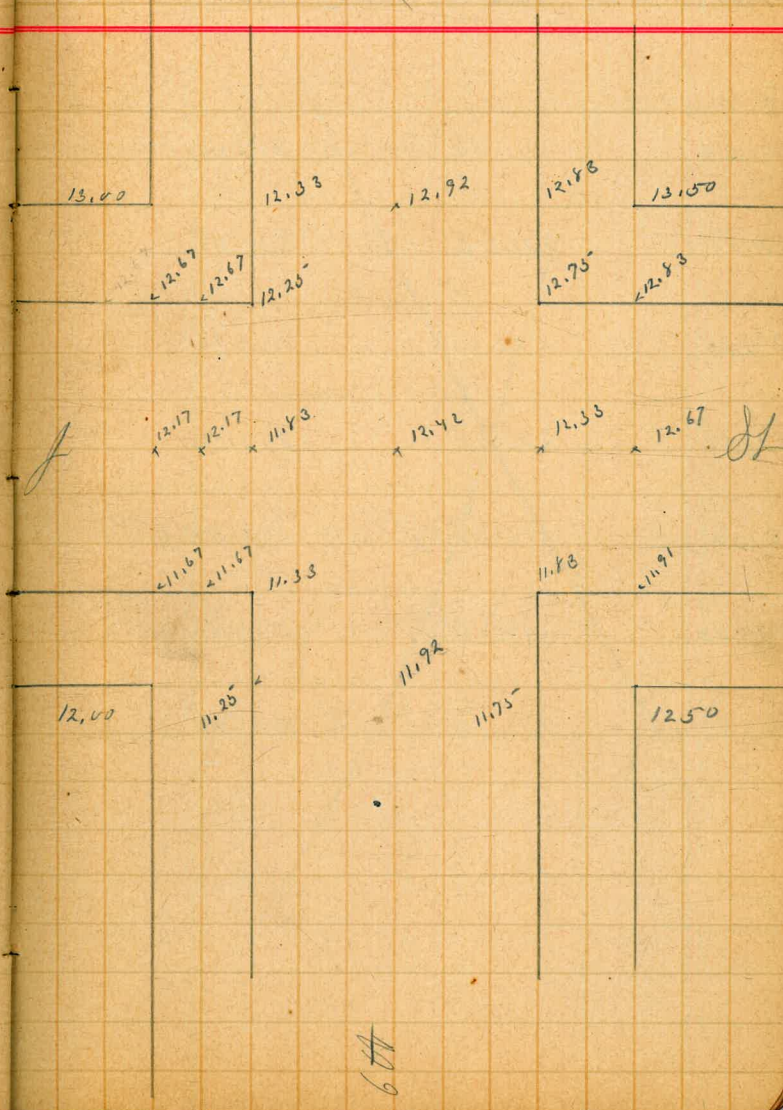 13.00 12.33 12.92 12.83 13.50
12.67 12.67 12.25 12.75 12.83
J 12.17 12.17 11.83 12.42 12.33 12.67 St
11.67 11.67 11.33 11.83 11.91
12.00 11.25 11.92 11.75 12 50
6th